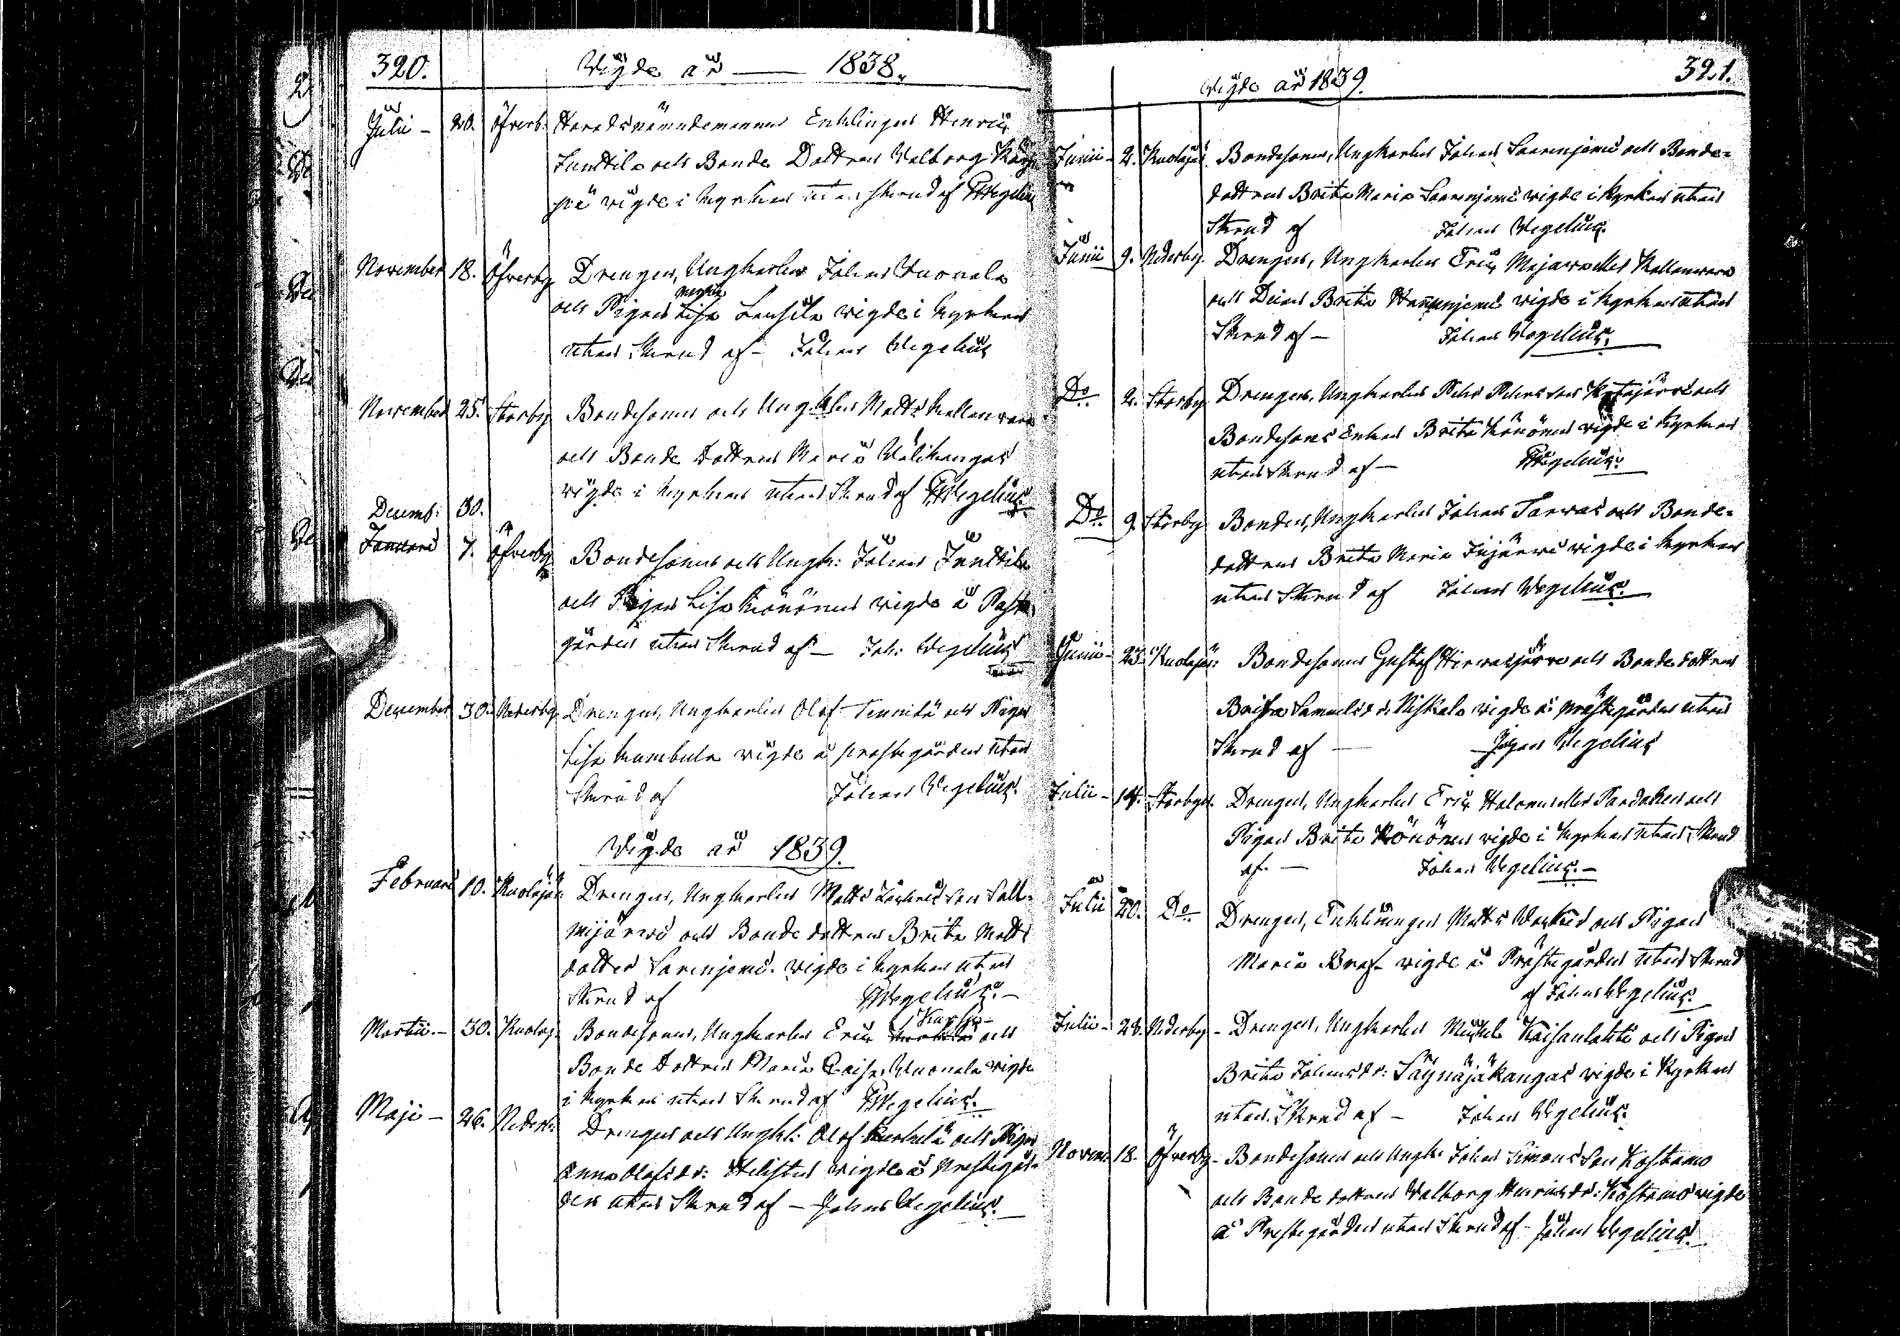 320. Vigde år — 1838.
Julii – 20. Öfverb. Häradsnämndemannen Enklingen Henric
Junttila och Bonde Dottren Valborg
pä vigde i kyrkan utan skrud af JWegelius
November 18. Öfverby Drengen, Ungkarlen Johan Vuonala
och Pigan Lisa vigde i kyrkan
utan skrud af – Johan Wegelius
November 25. Storby Bondesonen och Ungkarlen Matts Kallanvara
och Bonde Dottren Maria Välikangas
vigde i kyrkan utan skrud af JWegelius
Decemb: 30.
Januarii 7. Öfverby Bondesonen och Ungk: Johan Junttila
och Pigan Lisa Könönen vigde å Prest
gården utan skrud af – Joh: Wegelius
December 30. Nederby Drengen, Ungkarlen Olof Tennilä och Pigan
Lisa Kumbula vigde å prestegården utan
skrud af Johan Wegelius.
Vigde år 1839.
Februarii 10. Kuolajär: Drengen, Ungkarlen Matts Zachris son Sall-
mijärvi och Bonde dottren Brita Matts
dotter Sarenjemi vigde i kyrkan utan
skrud af JWegelius. –
Martii – 30. Kuolaj: Bondesonen, Ungkarlen Eric Kurtti och
Bonde Dottren Maria Caisa Vuonala vigde
i kyrkan utan skrud af JWegelius.
Maji – 26. Nederb: Drengen och Ungkl: Olof Karhula och Pigan
Anna Olofs dr: Hilistus vigde å Prestegår-
den utan skrud af – Johan Wegelius.
Vigde år 1839. 321.
Junii – 2. Kuolajär: Bondesonen, Ungkarlen Johan Saarenjemi och Bonde-
dottren Brita Maria Saarenjemi vigde i kyrkan utan
skrud af Johan Wegelius.
Junii 9. Nederby. Drengen, Ungkarlen Eric Majava eller Kallanvara
och Deian Brita Harjunjemi vigde i kyrkan utan
skrud af – Johan Wegelius.
Do 2. Storby Drengen, Ungkarlen Petter Petters son Kotajärvi och
Bondesons Enkan Brita Könönen vigde i kyrkan
utan skrud af – JWegelius.
Do 9. Storby Bonden, Ungkarlen Johan Tarvas och Bonde-
dottren Brita Maria Jujärvi vigde i kyrkan
utan skrud af Johan Wegelius.
Junii – 23. Kuolajär: Bondesonen Gustaf Hirvasjärvi och Bonde dottren
Brita Samuels dr Niskala vigde å prästegården utan
skrud af — Johan Wegelius
Julii – 14. Storbyn. Drengen, Ungkarlen Eric Halonen eller Pardanen och
Pigan Brita Könönen vigde i kyrkan utan skrud
af. — Johan Wegelius. –
Julii 20. Do Drengen, Enklingen Matts och Pigan
Maria Braf vigde å Prästegården utan skrud
af Johan Wegelius.
Julii – 28. Nederby – Drengen, Ungkarlen Michel Kaisanlahti och Pigan
Brita Johans dr: Säynäjäkangas vigde i Kyrkan
utan skrud af – Johan Wegelius.
Novemb: 18. Öfverby – Bondesonen och Ungk: Johan Simons Son Kostamo
och Bonde dottren Valborg Henrics dr: Kostamo vigde
å Prestegården utan skrud af – Johan Wegelius.